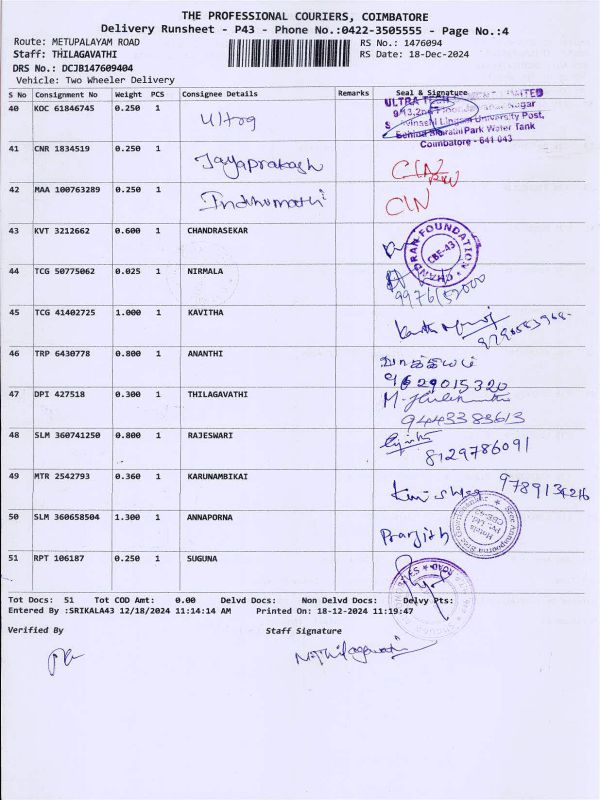 THE PROFESSIONAL COURIERS, COIMBATORE
Delivery Runsheet - P43 - Phone No.:0422-3505555 - Page No.:4
Route: METUPALAYAM ROAD RS No.: 1476094
Staff: THILAGAVATHI RS Date: 18-Dec-2024
DRS No.: DCJB147609404
Vehicle: Two Wheeler Delivery
S No Consignment No Weight PCS Consignee Details Remarks Seal & Signature
40 KOC 61846745 0.250 1 Ultra
ULTRA TECH LIMITED
Nagar
University Post,
Behind Bharathi Park Water Tank
Coimbatore - 641 043
41 CNR 1834519 0.250 1 Jayaprakash
42 MAA 100763289 0.250 1 Indhumathi
43 KVT 3212662 0.600 1 CHANDRASEKAR
CHANDRAN FOUNDATION
CBE-43
44 TCG 50775062 0.025 1 NIRMALA
9976152000
45 TCG 41402725 1.000 1 KAVITHA
46 TRP 6430778 0.800 1 ANANTHI
9629015320
47 DPI 427518 0.300 1 THILAGAVATHI
9443383613
48 SLM 360741250 0.800 1 RAJESWARI
8129786091
49 MTR 2542793 0.360 1 KARUNAMBIKAI
9789134216
50 SLM 360658504 1.300 1 ANNAPORNA Pranjith
51 RPT 106187 0.250 1 SUGUNA
Tot Docs: 51 Tot COD Amt: 0.00 Delvd Docs: Non Delvd Docs: Delvy Pts:
Entered By :SRIKALA43 12/18/2024 11:14:14 AM Printed On: 18-12-2024 11:19:47
Verified By Staff Signature
N.Thilagavathi